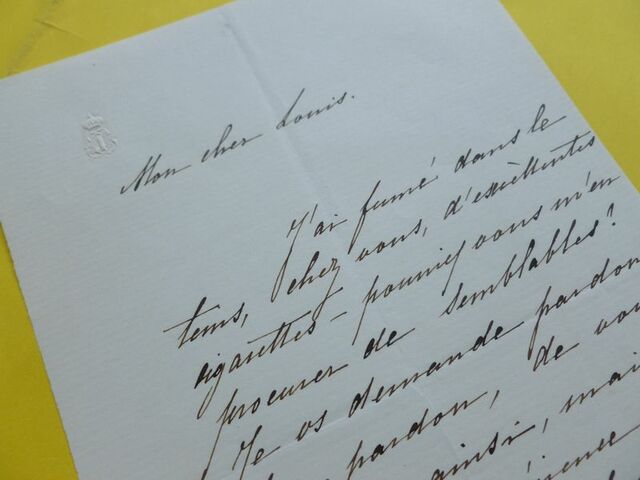 Mon cher Louis.
J'ai fumé dans le
tems, chez vous, d'excèllentes
cigarettes – pouriez vous m'en
procurer de semblables?
Je vs demande pardon
pardon, de vou
ainsi, mai